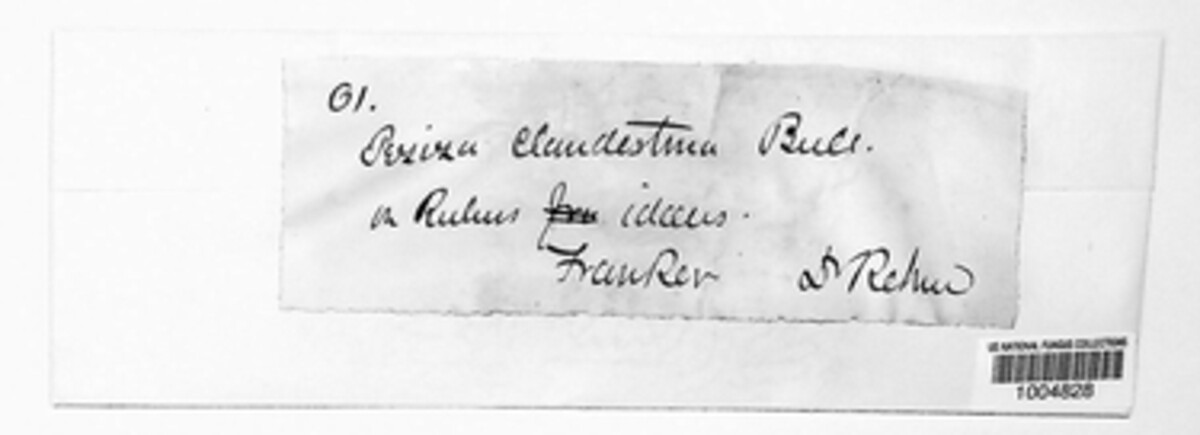 61.
Peziza clandestina Bull.
on Rubus idaeus.
Franken Dr Rehm
US NATIONAL FUNGUS COLLECTIONS
1004828